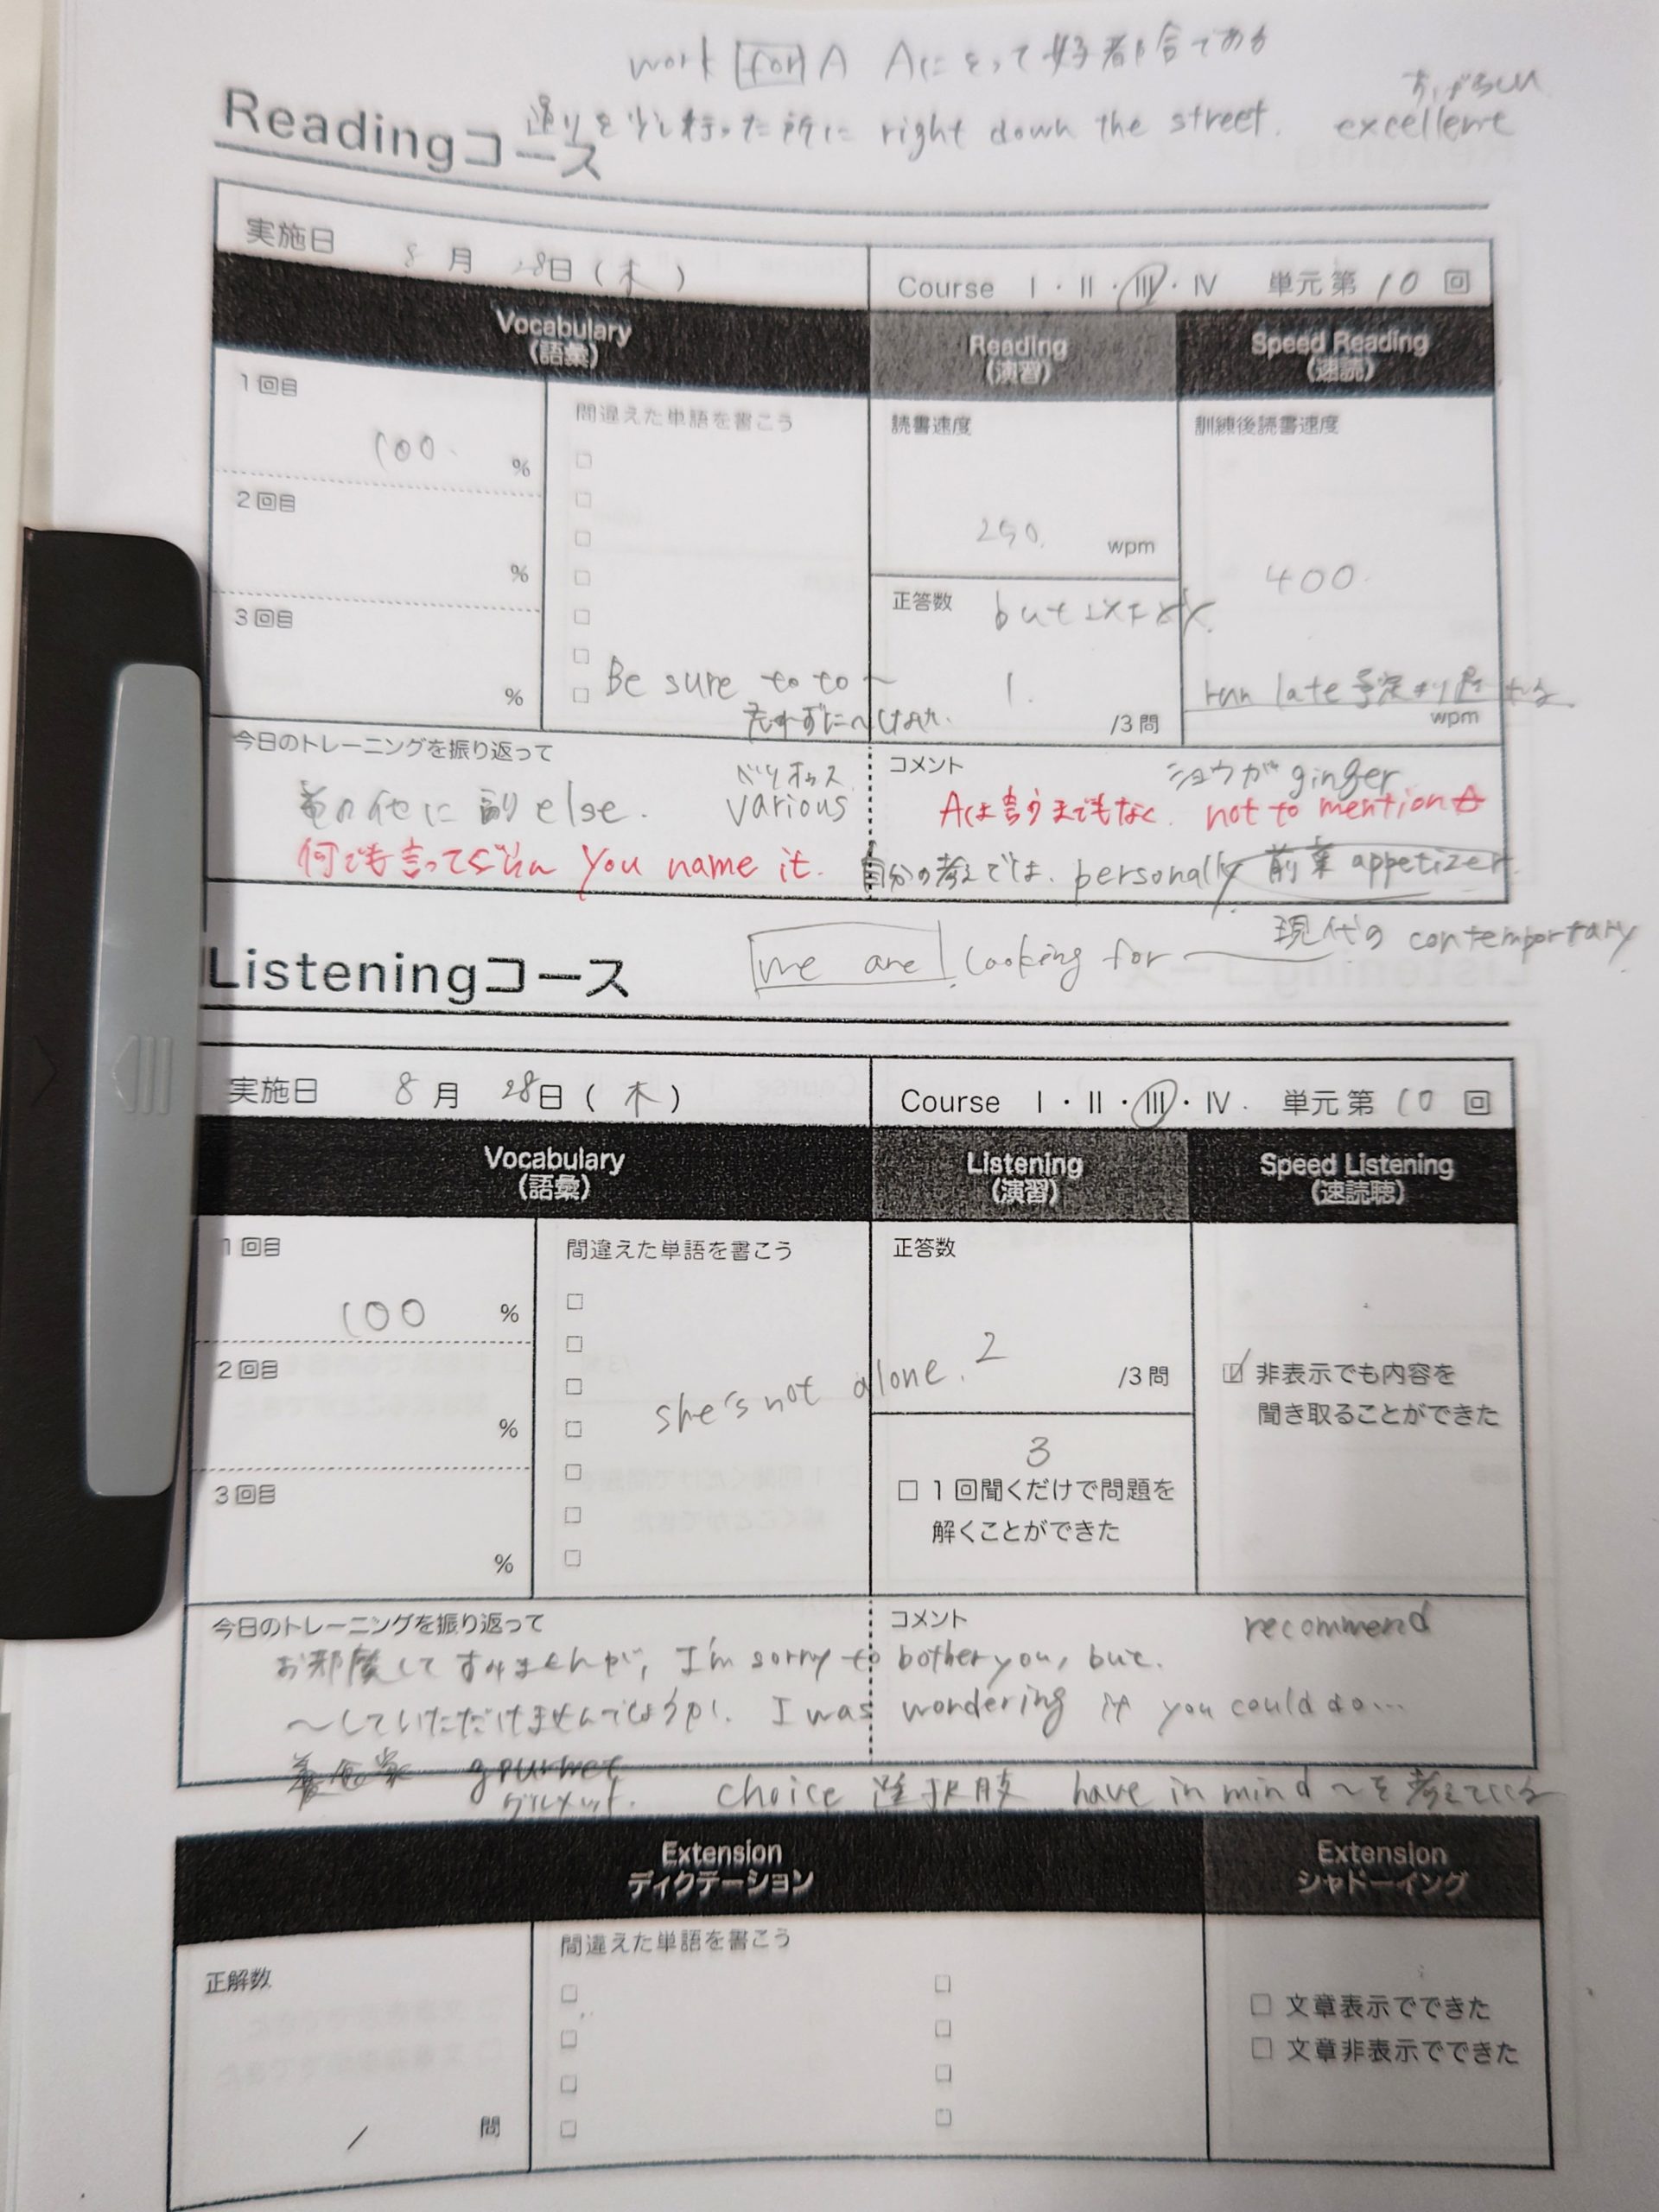 work for A Aにとって好都合である
すばらしい
Readingコース 通りを少し行った所に right down the street. excellent
実施日 8月 28日(木) Course Ⅰ・Ⅱ・Ⅲ・Ⅳ 単元第 10 回
Vocabulary
(語彙)
Reading
(演習)
Speed Reading
(速読)
1回目
100. %
2回目
%
3回目
%
間違えた単語を書こう
Be sure to to ~
忘れずに~しなさい.
読書速度
250. wpm
正答数 but
1. /3問
訓練後読書速度
400.
run late 予定より遅れる.
wpm
今日のトレーニングを振り返って
その他に 副 else. ベリオゥス various
何でも言ってください You name it.
コメント ショウガ ginger
Aは言うまでもなく. not to mention A
自分の考えでは. personally 前菜 appetizer.
現代の contemportary
Listeningコース we are looking for
実施日 8月 28日(木) Course Ⅰ・Ⅱ・Ⅲ・Ⅳ. 単元第 10 回
Vocabulary
(語彙)
Listening
(演習)
Speed Listening
(速読聴)
1回目
100 %
2回目
%
3回目
%
間違えた単語を書こう
she's not alone.
正答数
2 /3問
3
1回聞くだけで問題を
解くことができた
非表示でも内容を
聞き取ることができた
今日のトレーニングを振り返って
コメント recommend
お邪魔してすみませんが, I'm sorry to bother you, but.
~していただけませんでしょうか. I was wondering if you could do...
美食家 gourmet
グルメット. choice 選択肢 have in mind ~を考えている
Extension
ディクテーション
Extension
シャドーイング
正解数
/ 問
間違えた単語を書こう
文章表示でできた
文章非表示でできた